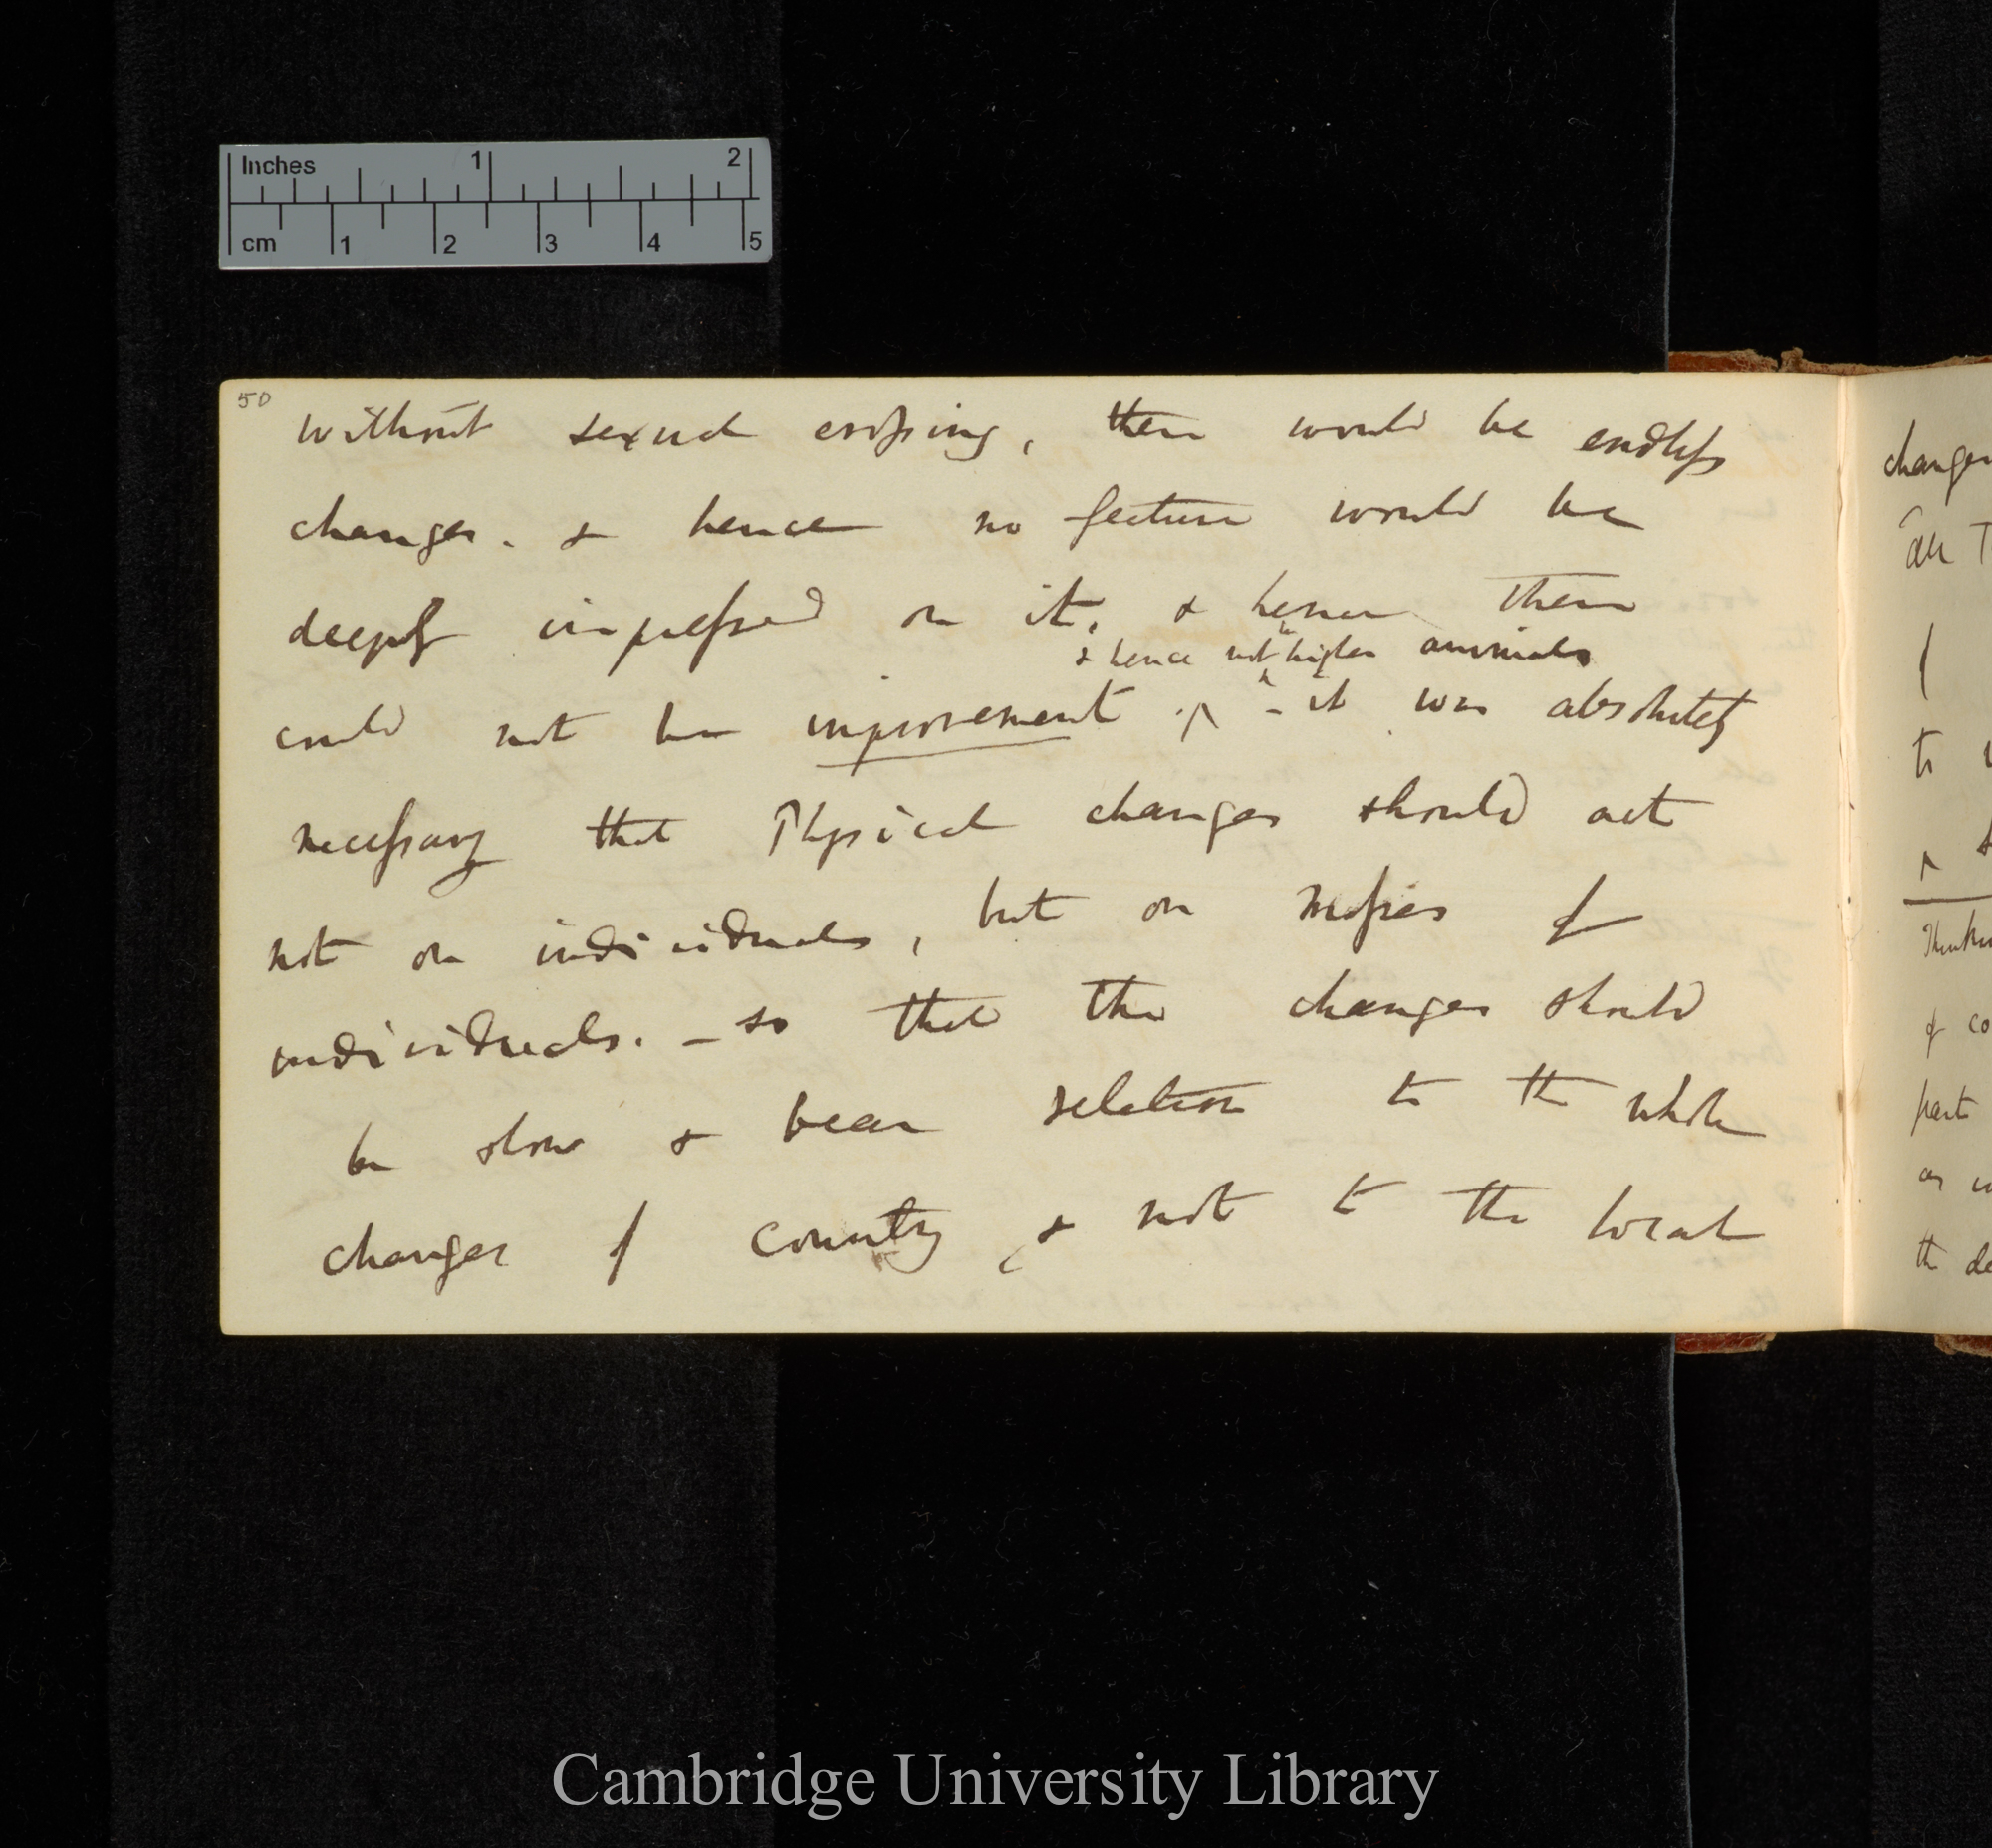 Inches 1 2
cm 1 2 3 4 5
50
without sexual crossing, there would be endless
changes. & hence no feature would be
deeply impressed on it, & hence there
& hence not higher animals
could not be improvement . ^ - it was absolutely
necessary that Physical changes should act
not on individuals, but on masses of
individuals. - so that the changes should
be slow & bear relation to the whole
changes of country, & not to the local
changes
all
to
of co
part
as
the de
Cambridge University Library